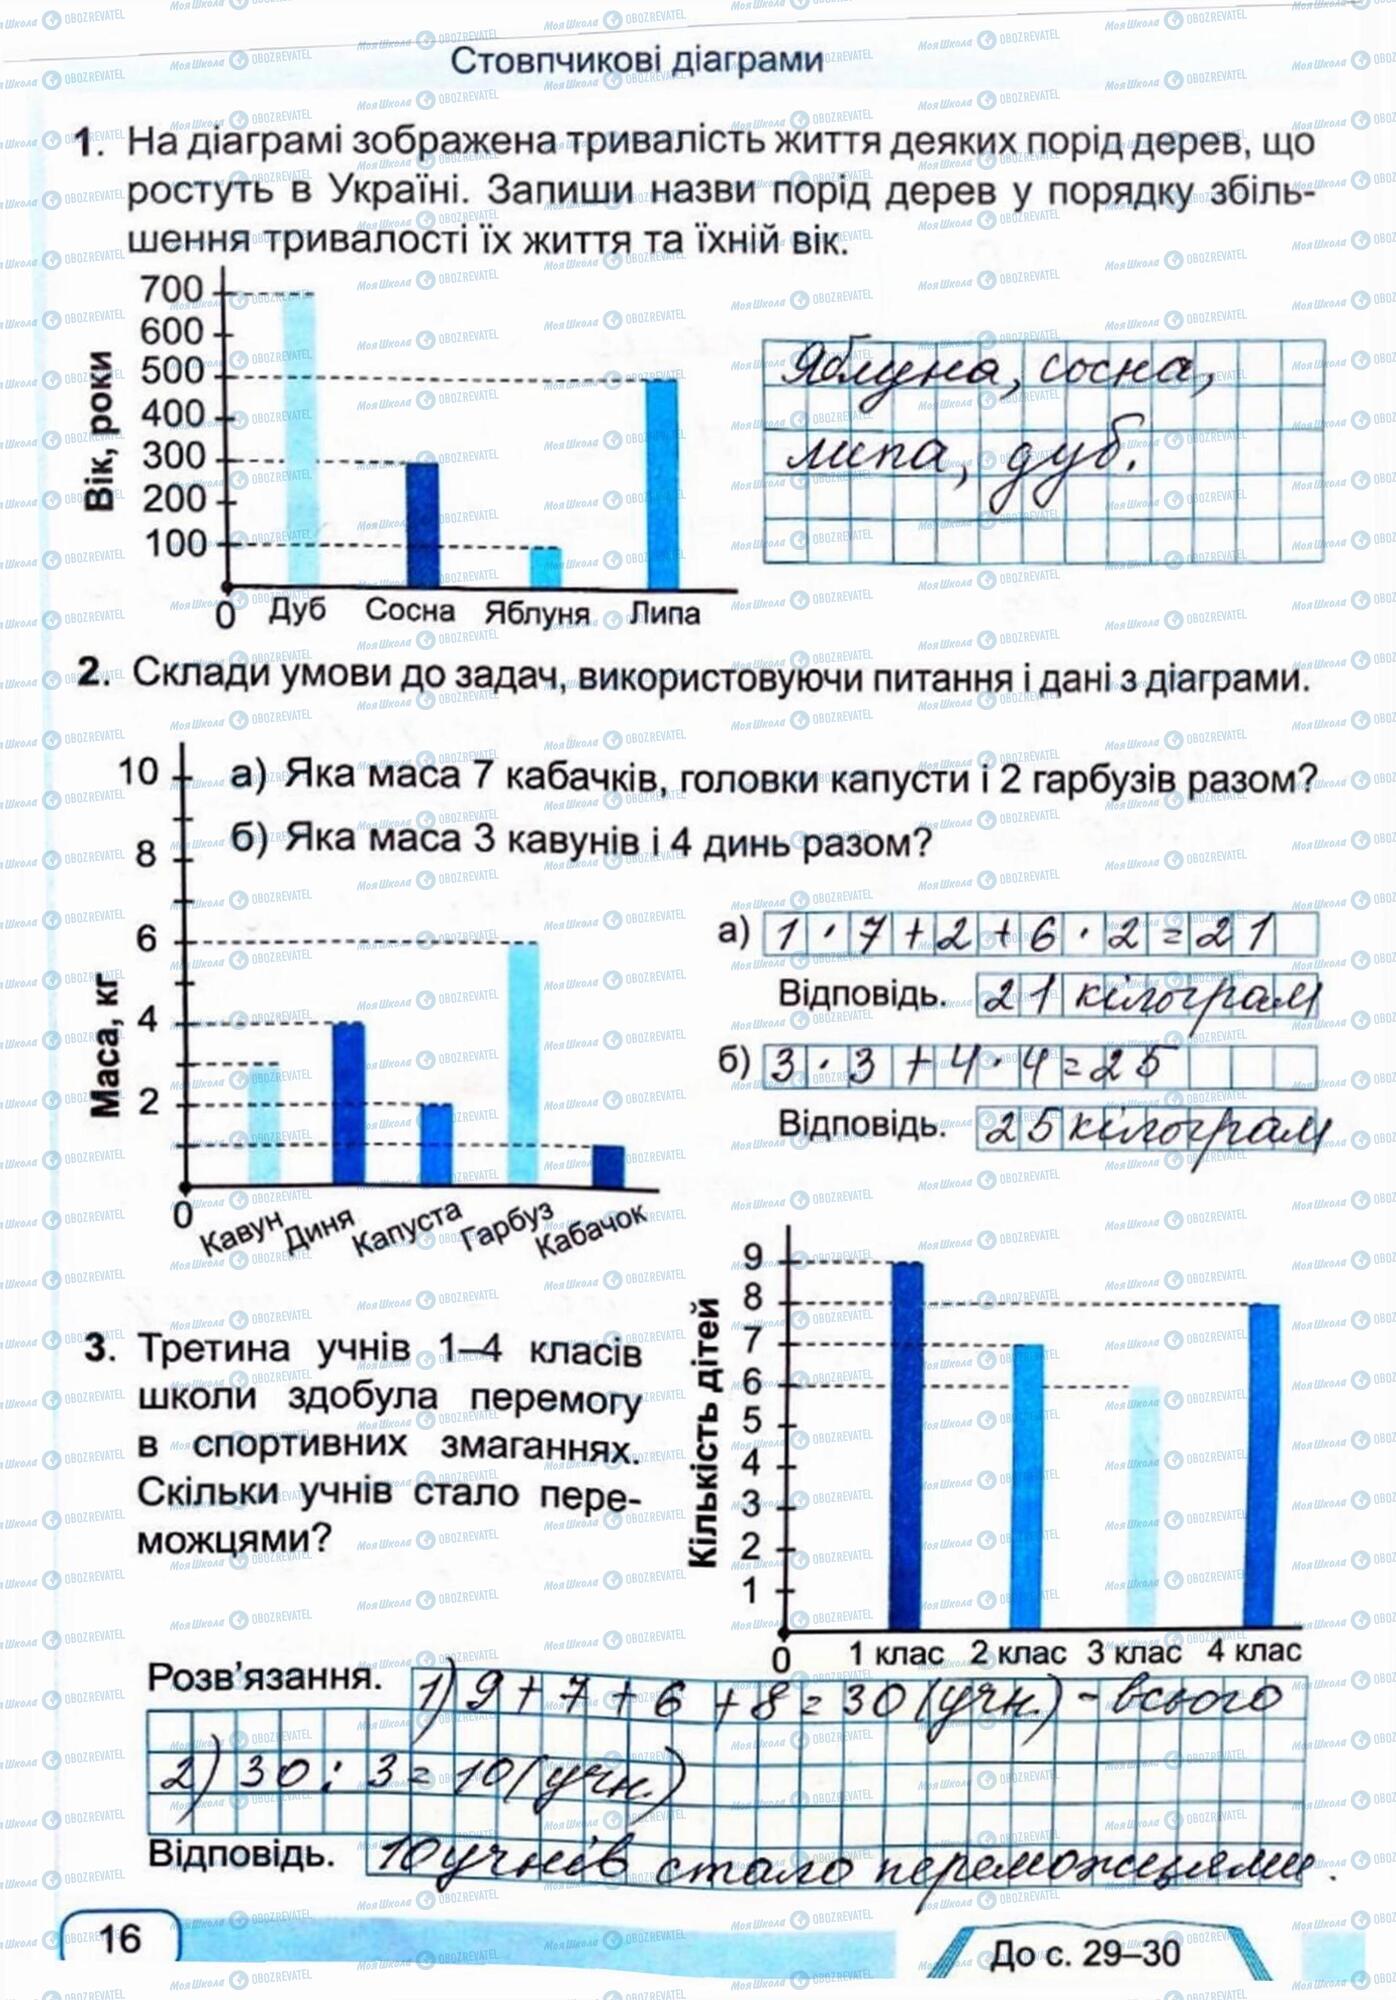 Стовпчикові діаграми
1. На діаграмі зображена тривалість життя деяких порід дерев, що
ростуть в Україні. Запиши назви порід дерев у порядку збіль-
шення тривалості їх життя та їхній вік.
Вік, роки
700
600
500
400
300
200
100
0
Дуб Сосна Яблуня Липа
Яблуна, сосна,
липа, дуб.
2. Склади умови до задач, використовуючи питання і дані з діаграми.
а) Яка маса 7 кабачків, головки капусти і 2 гарбузів разом?
б) Яка маса 3 кавунів і 4 динь разом?
Маса, кг
10
8
6
4
2
0
Кавун Диня Капуста Гарбуз Кабачок
а) 1 · 7 + 2 + 6 · 2 = 21
Відповідь. 21 кілограм
б) 3 · 3 + 4 · 4 = 25
Відповідь. 25 кілограм
3. Третина учнів 1–4 класів
школи здобула перемогу
в спортивних змаганнях.
Скільки учнів стало пере-
можцями?
Кількість дітей
9
8
7
6
5
4
3
2
1
0
1 клас 2 клас 3 клас 4 клас
Розв'язання. 1) 9 + 7 + 6 + 8 = 30 (учн.) - всього
2) 30 : 3 = 10 (учн.)
Відповідь. 10 учнів стало переможцями.
16
До с. 29–30
Моя Школа OBOZREVATEL